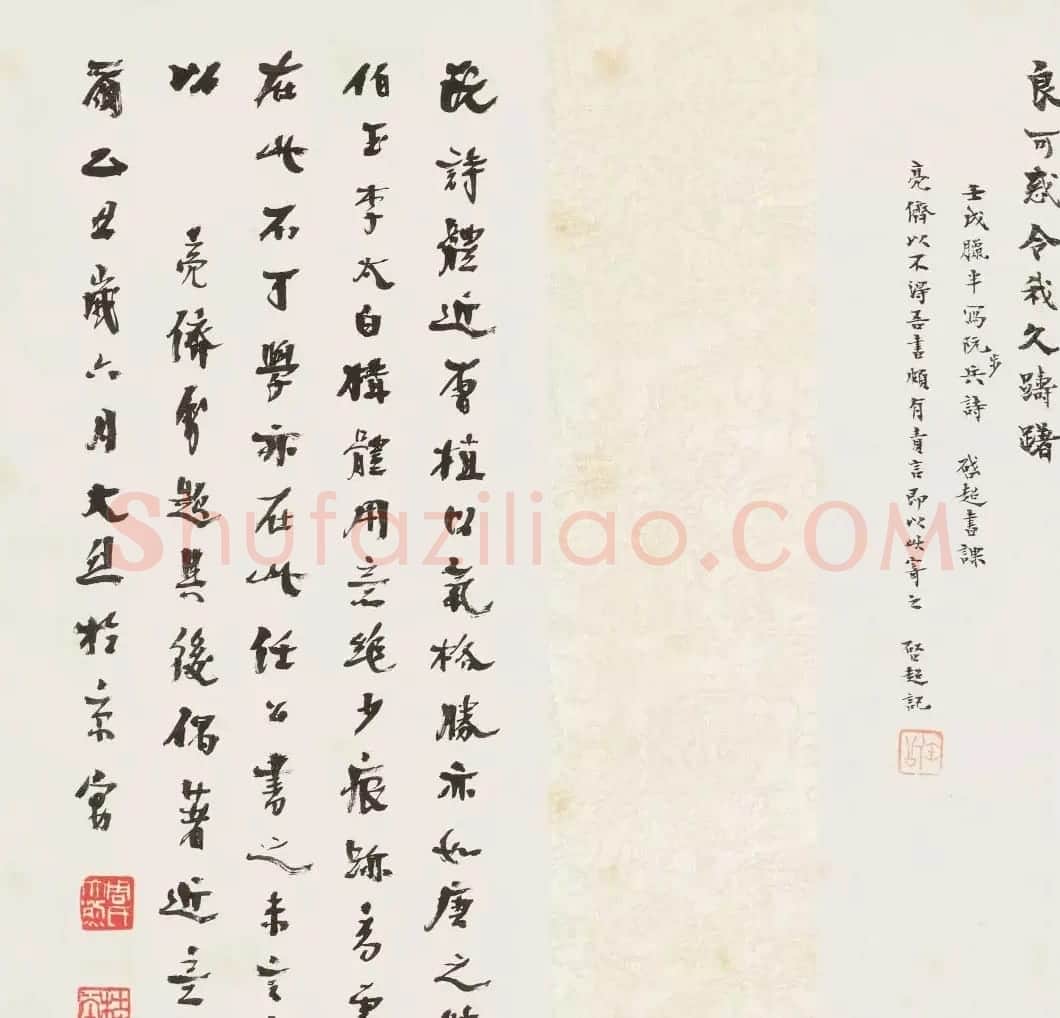 良可惑令我久躊躇
壬戌臘半寫阮步兵詩 啓超書課
亮儕以不得吾書頗有責言即以此寄之 啓超記
阮詩體近曹植以氣格勝亦如唐之
伯玉李太白構體用意絕少痕跡高
在此不可學亦在此任公書之未言
以 亮儕屬題其後偶著近意
爾乙丑歲六月大烈於京寓
Shufaziliao.COM